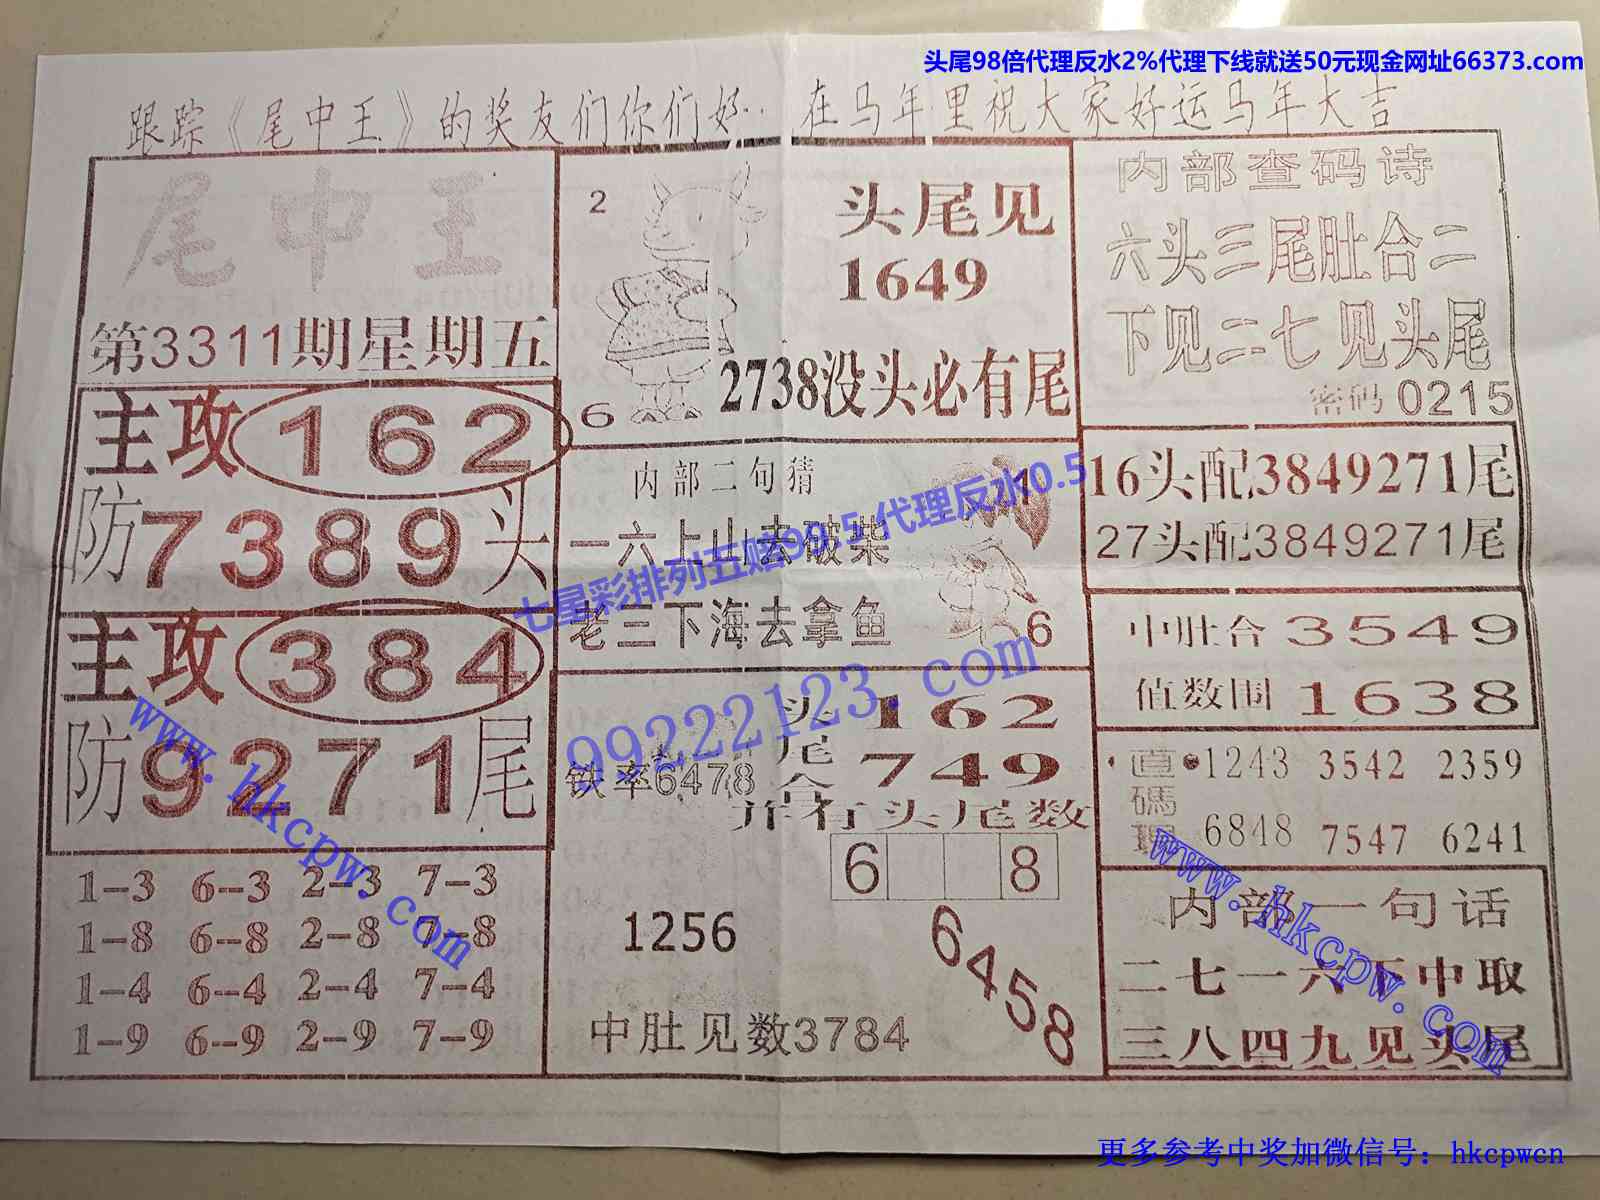 头尾98倍代理反水2%代理下线就送50元现金网址66373.com
跟踪《尾中王》的奖友们你们好.. 在马年里祝大家好运马年大吉
尾中王
第3311期星期五
主攻162
防7389头
主攻384
防9271尾
1-3 6-3 2-3 7-3
1-8 6-8 2-8 7-8
1-4 6-4 2-4 7-4
1-9 6-9 2-9 7-9
2
头尾见
1649
2738没头必有尾
6
内部二句猜
一六上山去破柴
老三下海去拿鱼
6
七星彩排列五赔99.5代理反水0.5
99222123.com
头162
尾749
合
铁率6478
并有头尾数
6 8
1256
6458
中肚见数3784
内部查码诗
六头三尾肚合二
下见二七见头尾
密码0215
16头配3849271尾
27头配3849271尾
中肚合3549
值数围1638
直碼 1243 3542 2359
6848 7547 6241
内部一句话
二七一六下中取
三八四九见头尾
www.hkcpw.com
www.hkcpw.com
更多参考中奖加微信号：hkcpwcn